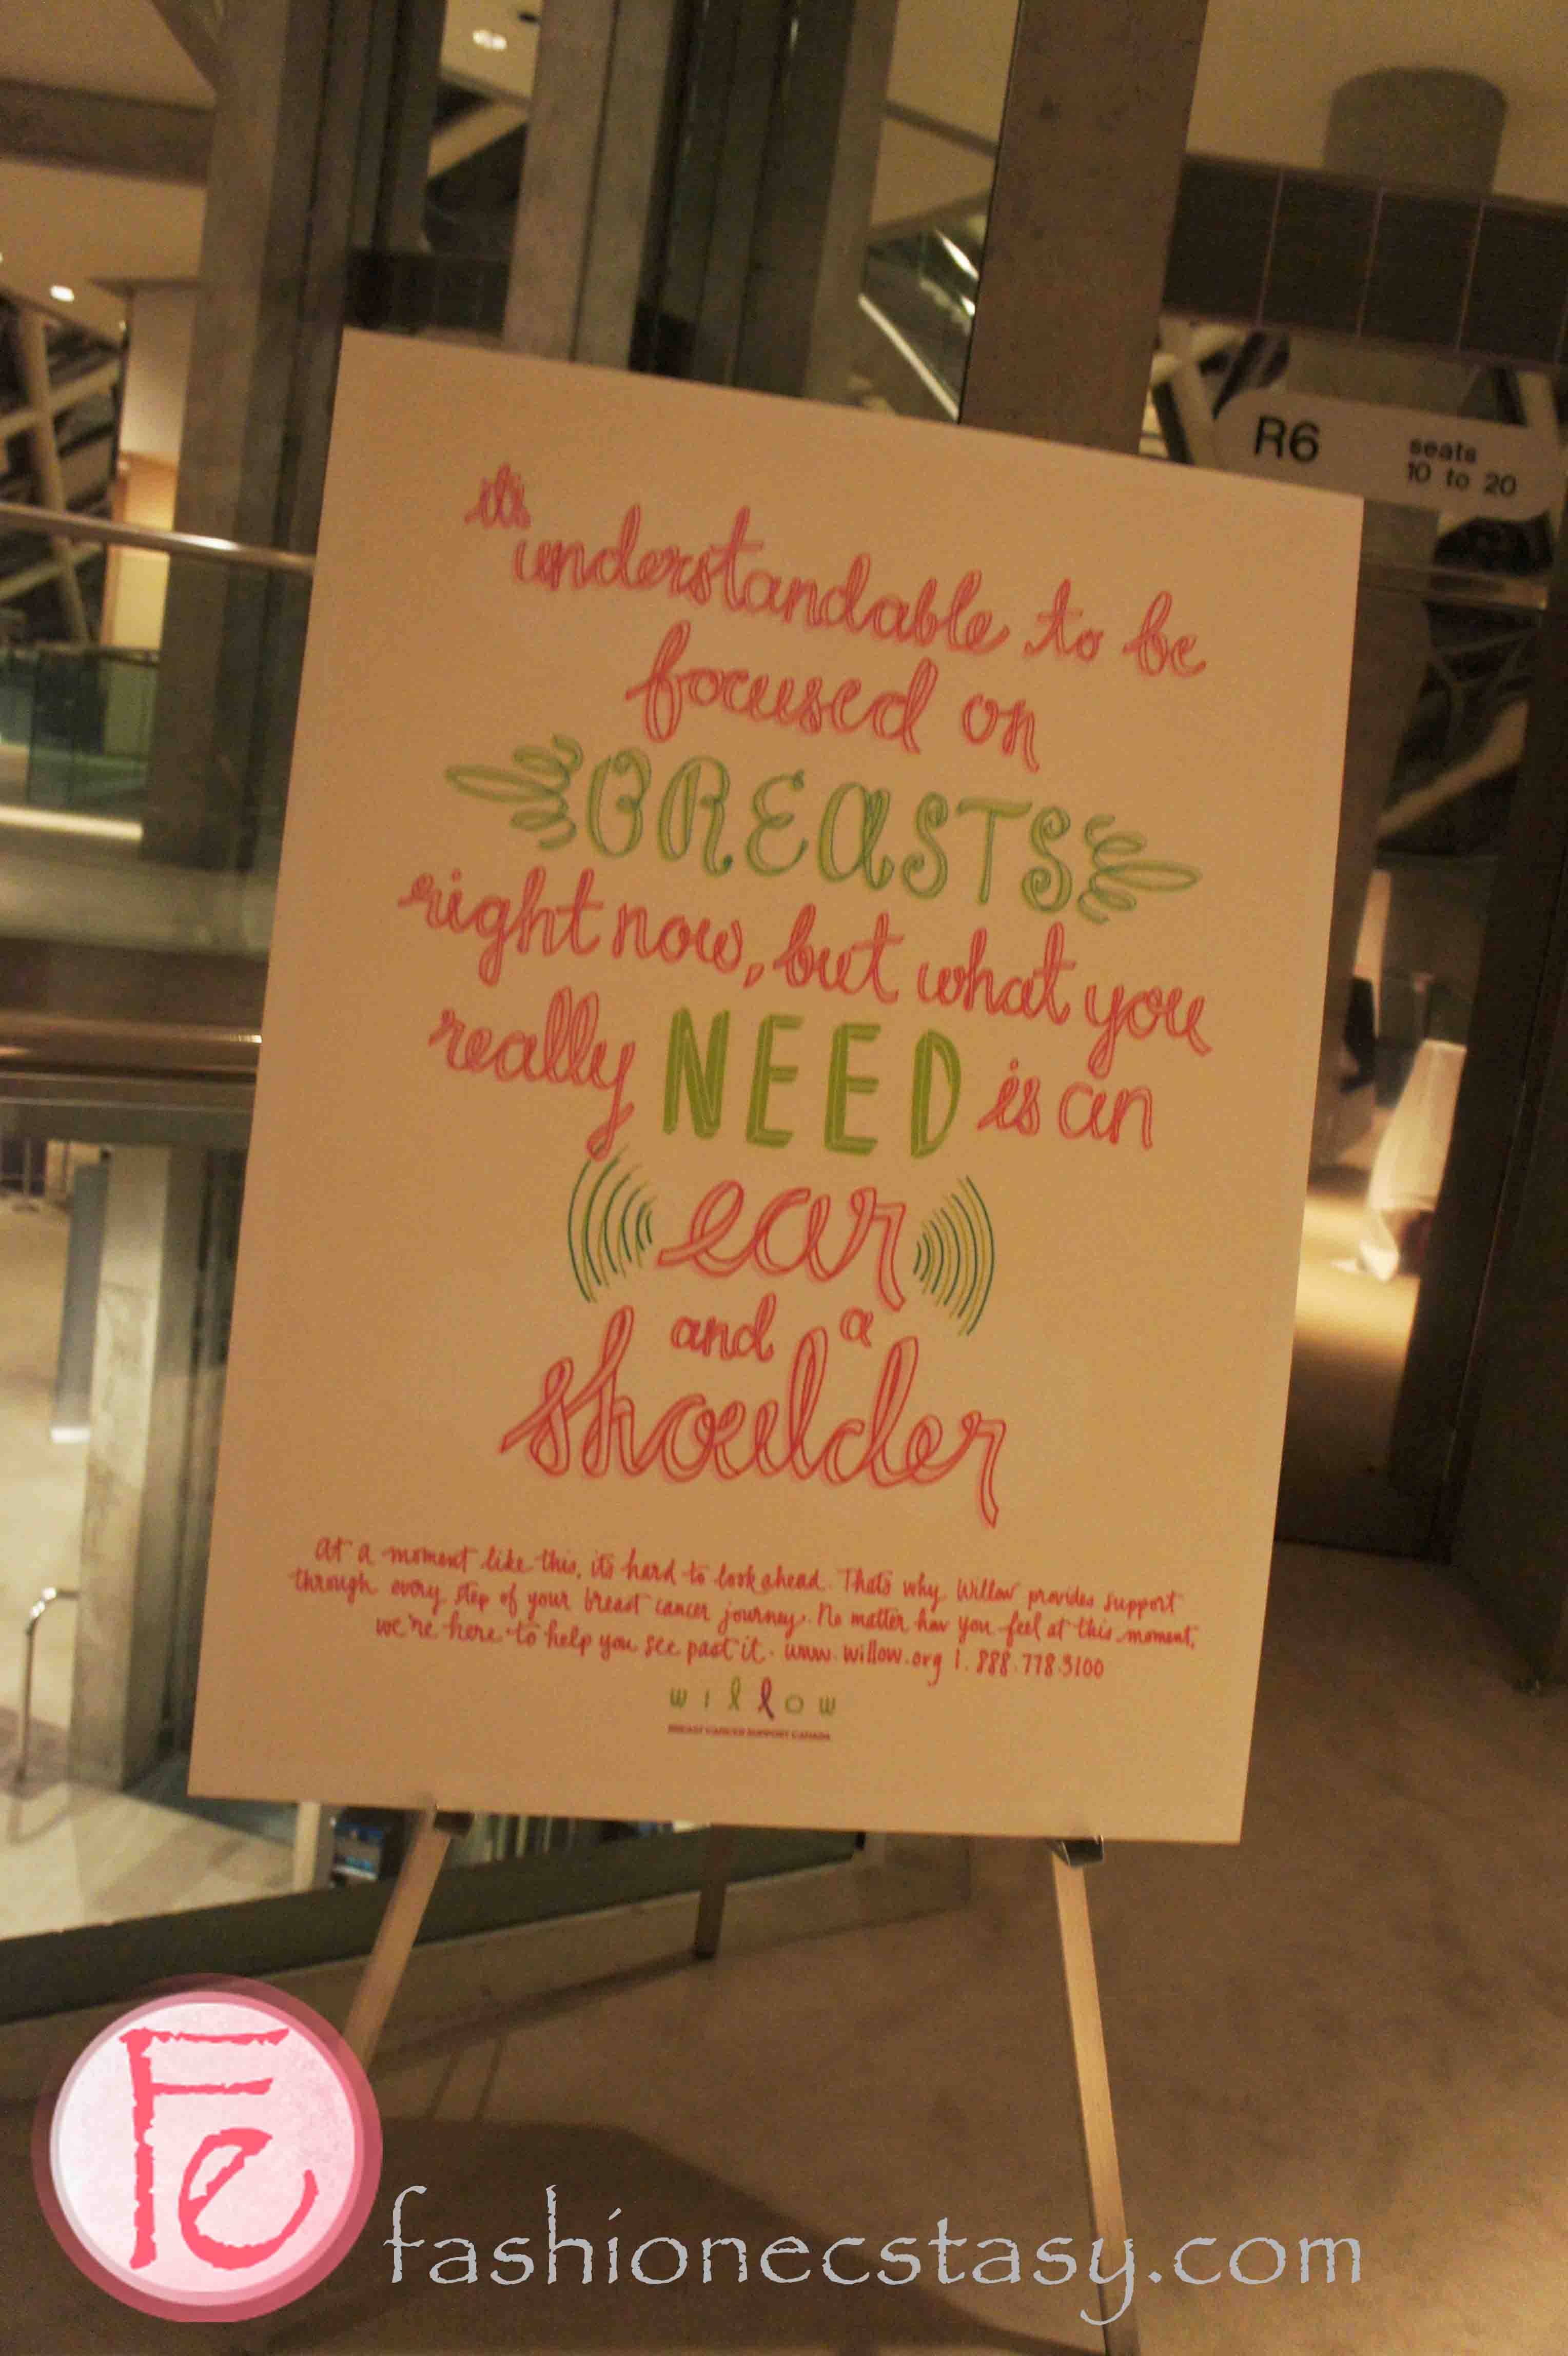 R6
seats
10 to 20
it's
understandable to be
focused on
BREASTS
right now, but what you
really NEED is an
ear
and a
shoulder
At a moment like this, it's hard to look ahead. That's why Willow provides support
through every step of your breast cancer journey. No matter how you feel at this moment,
we're here to help you see past it. www.willow.org 1.888.778.3100
willow
BREAST CANCER SUPPORT CANADA
Fe
fashionecstasy.com